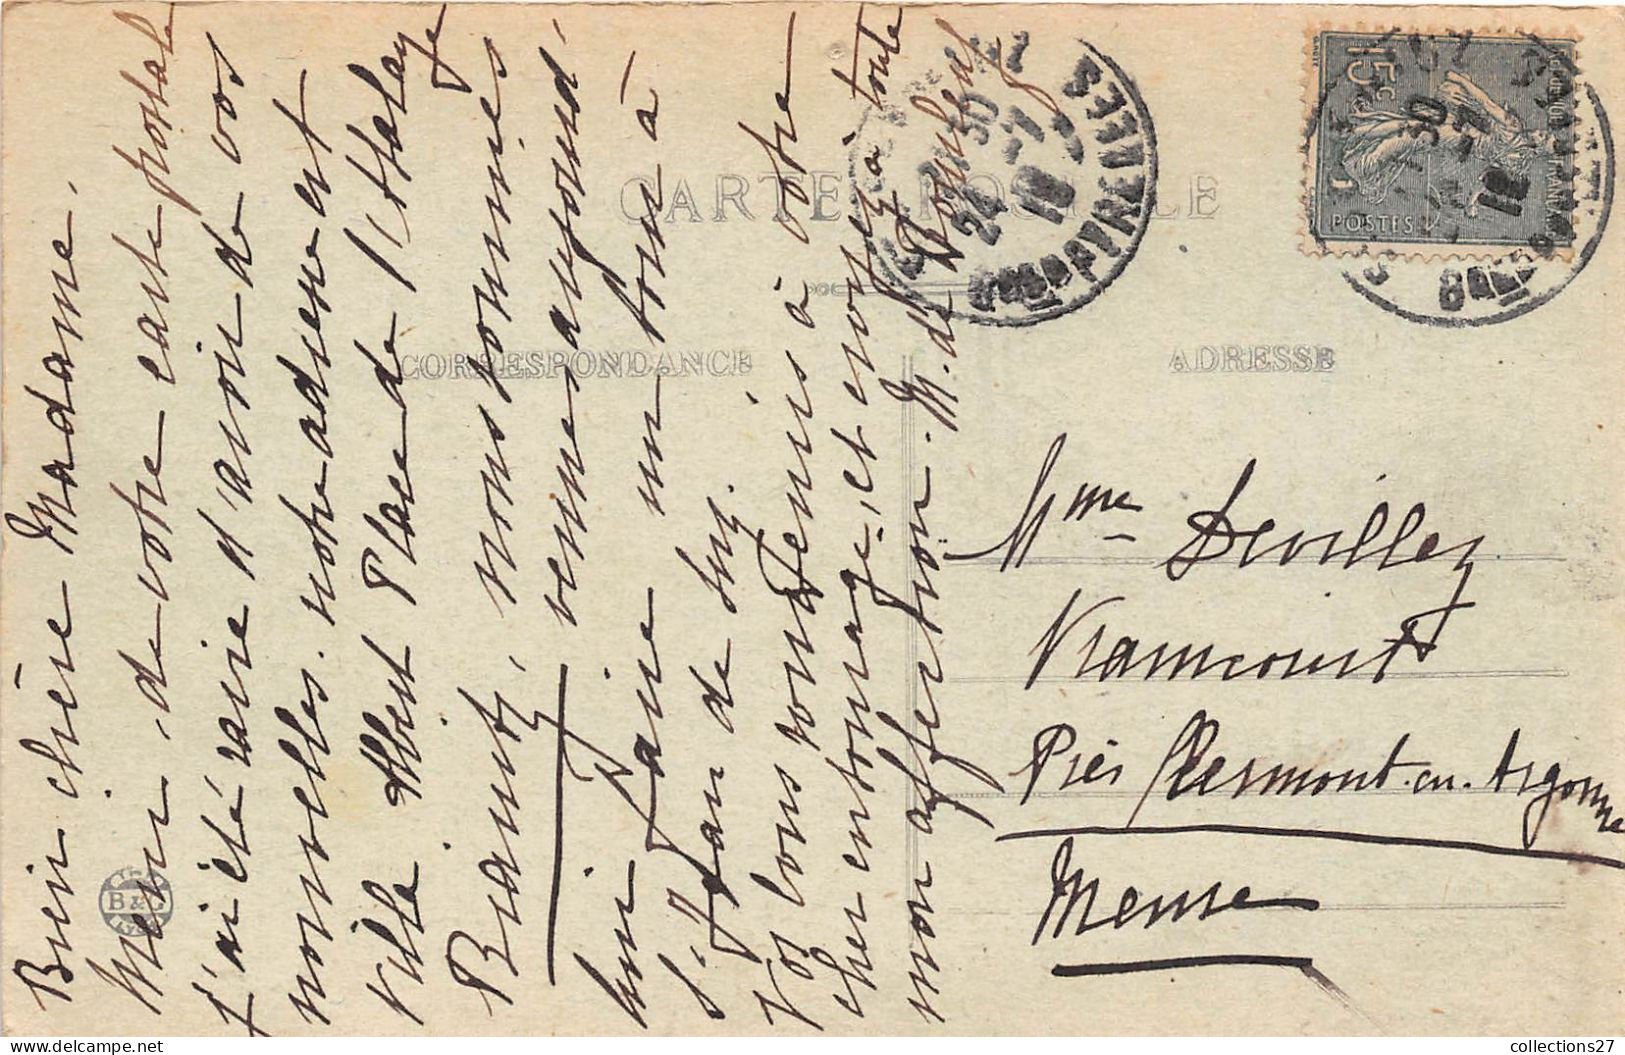 CARTE POSTALE
CORRESPONDANCE
ADRESSE
15c
POSTES
24 -7 18
BASSES PYRENEES
Bien chère Madame,
Merci de votre carte postale
j'ai été ravie d'avoir de vos
nouvelles. notre adresse est
Ville Albert Place de l'
Biarritz, nous sommes
venues aujourd'
hui faire un tour à
St Jean de Luz.
Vos bons souvenirs à votre
cher entourage, et croyez à toute
mon affection. M. de
Mme Devillez
Vraincourt
Près Clermont-en-Argonne
Meuse
B & C
collections27